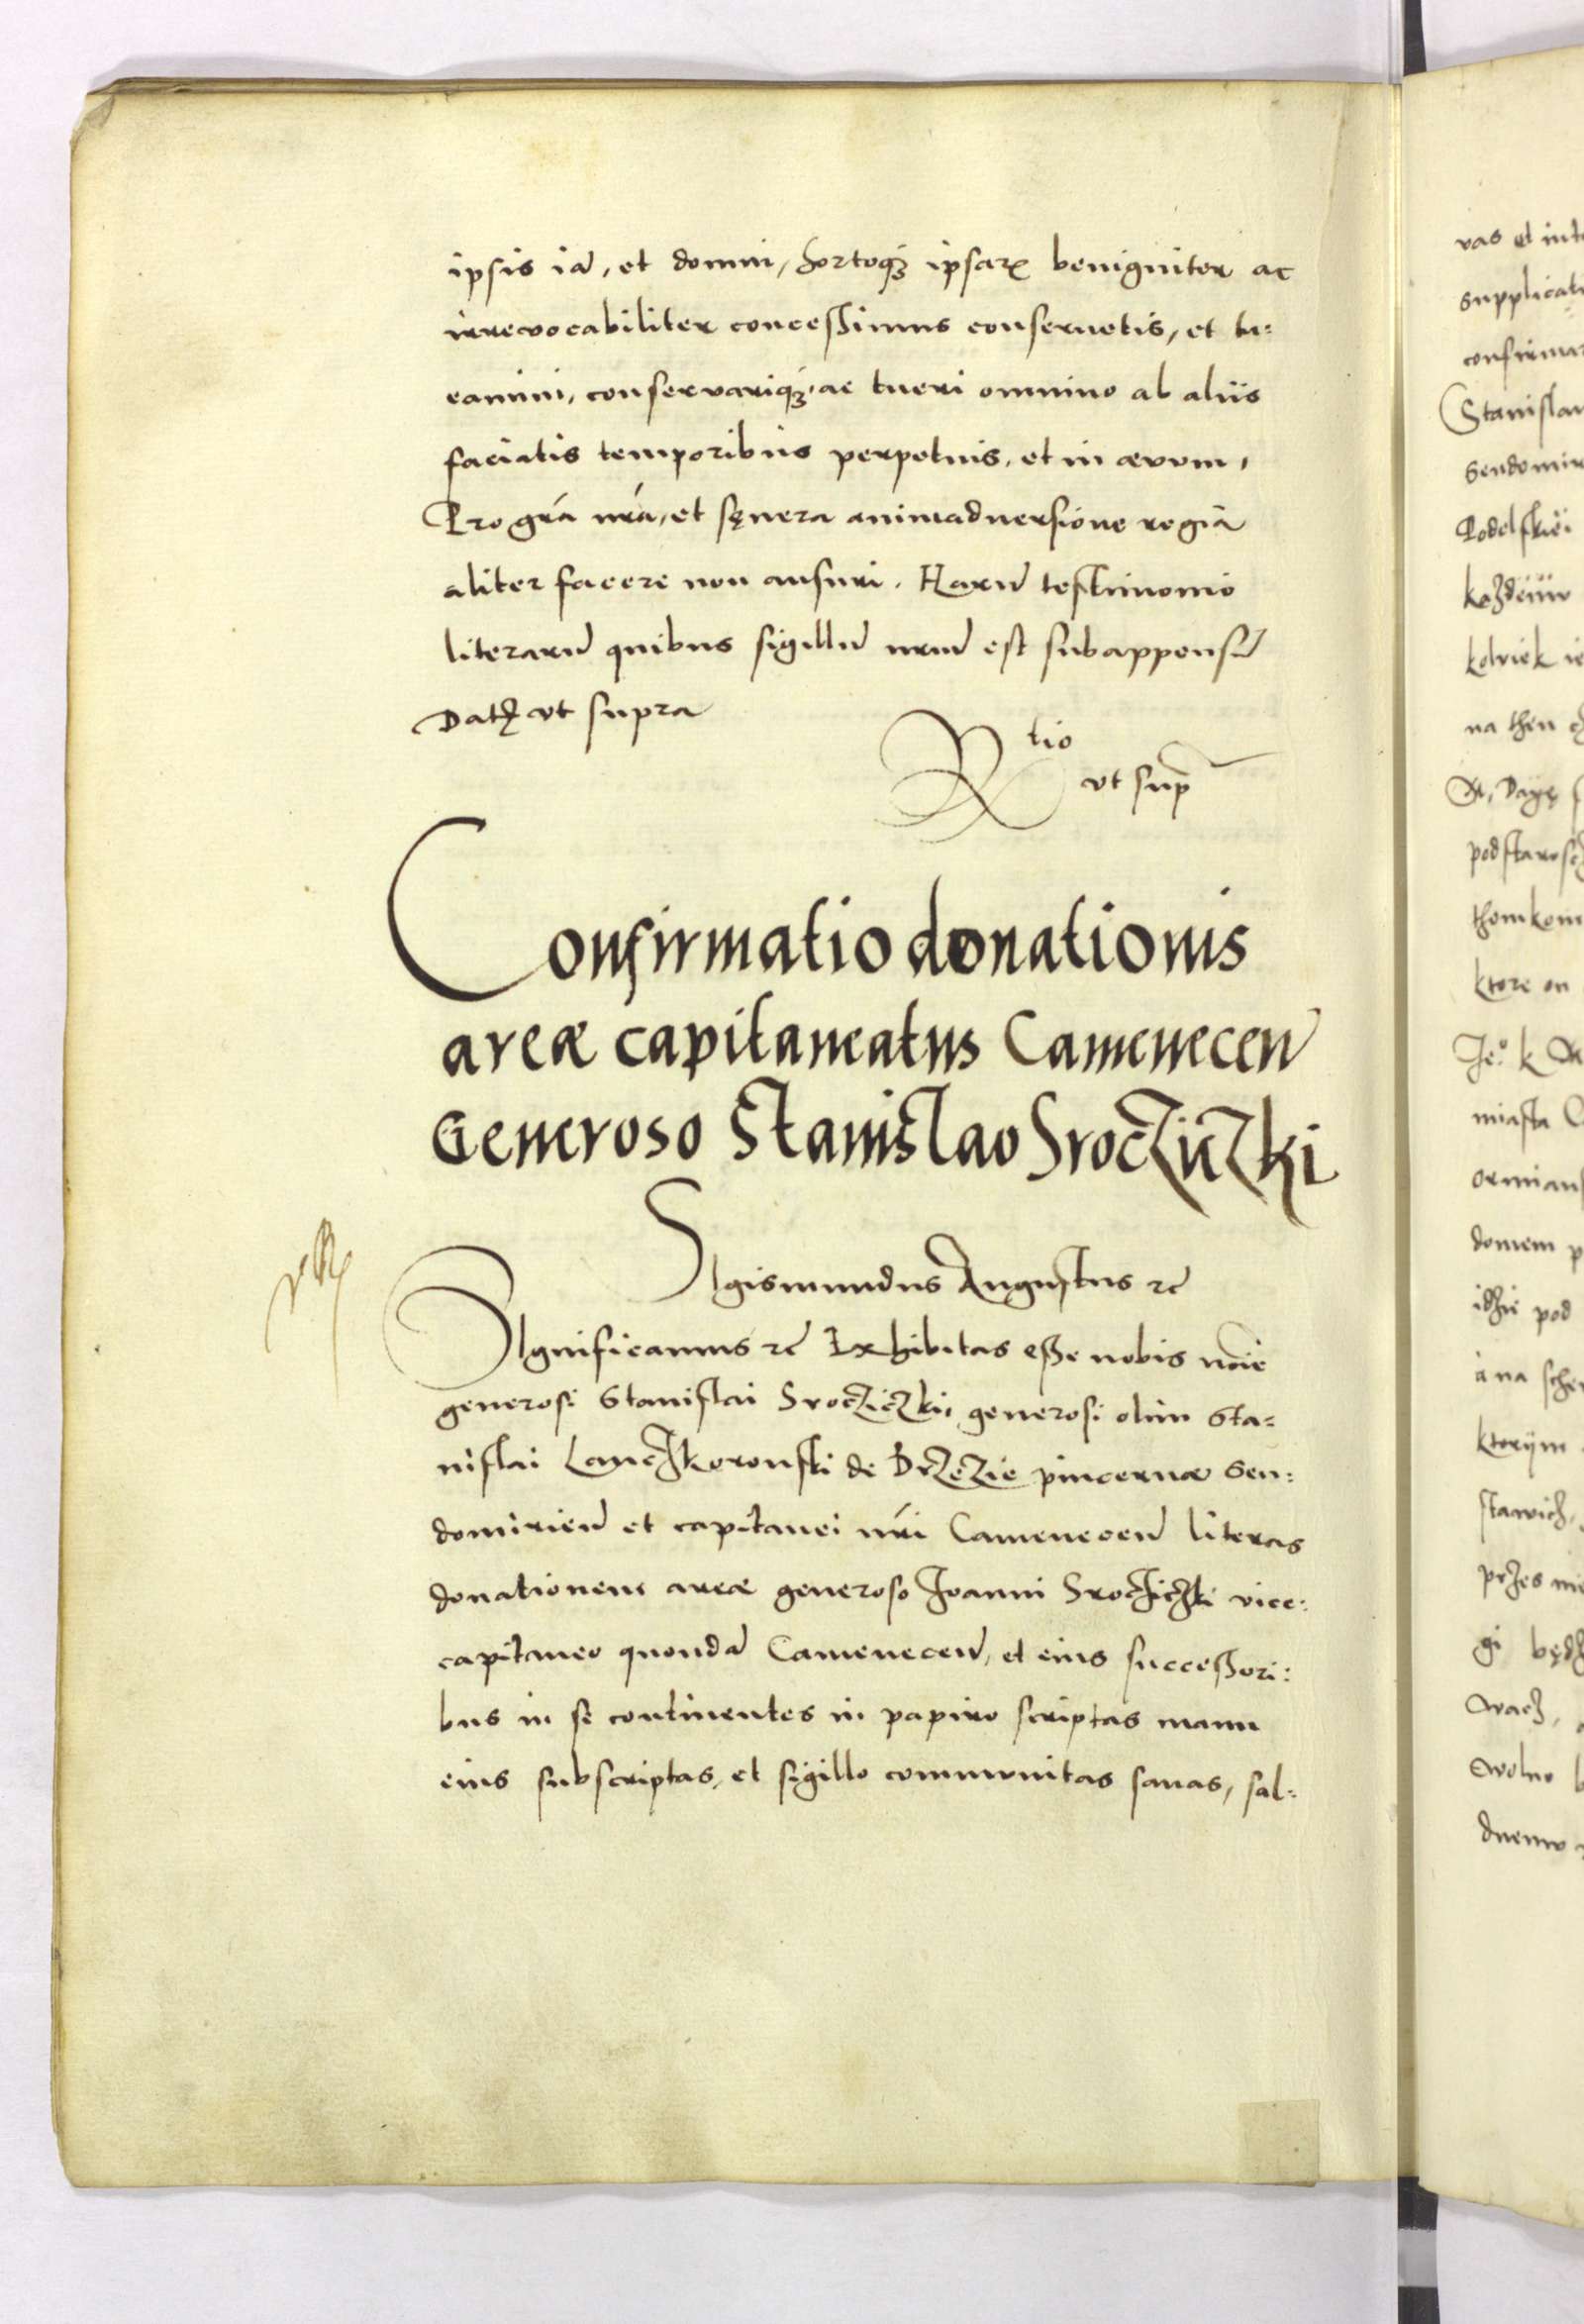 ipsis iā, et domui, hortoqꝫ ipsarꝫ benigniter ac
irrevocabiliter concessimus conservetis, et tu=
eamini, conservariqꝫ, ac tueri omnino ab aliis
faciatis temporibus perpetuis, et in ævum,
Pro grā nrā, et sęvera animadversione regia
aliter facere non ausuri. Harū testimonio
literarū quibus sigillū nrū est subappensū
Datꝫ vt supra
Rtio
vt supᷓ
Confirmatio donationis
areæ capitaneatus Camenecen̄
Generoso Stanislao Srocziczki
Sigismundus Augustus ꝛc̄
Significamus ꝛc̄ Exhibitas esse nobis noīe
generosi Stanislai Srocziczki, generosi olim Sta=
nislai Lanczkoronski de Brzezie pincernæ Sen=
domirien̄ et capitanei nr̄i Camenecen̄ literas
donationem areæ generoso Joanni Srocziczki vice=
capitaneo quondā Camenecen̄, et eius successori=
bus in se continentes in papiro scriptas manu
eius subscriptas, et sigillo communitas sanas, sal=
vas et int
supplicati
confirmar
Stanislau
Sendomir
Podolskiei
kolwiek ie
na then
podstarosc
thomkom
ktore on
miasta
ormians
domem p
idzie pod
ktorym
stawich,
przes
gi będz
wach,
wolno